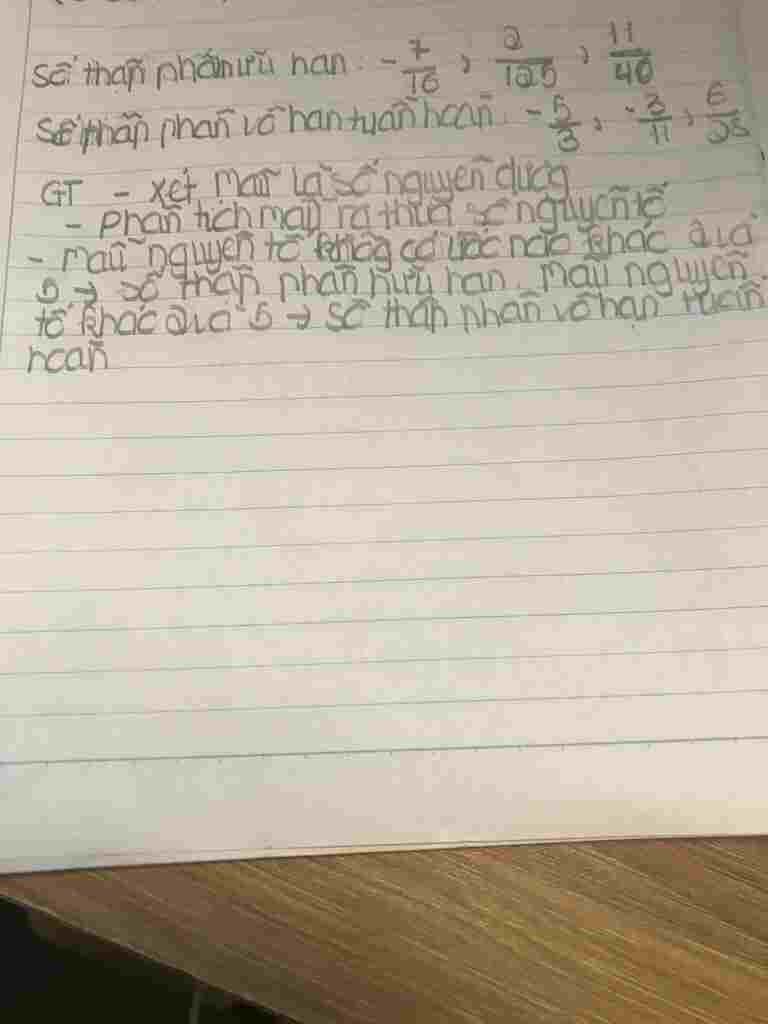 Số thập phân hữu hạn: -7/16, 2/125, 11/40
Số thập phân vô hạn tuần hoàn: -5/3, -3/11, 6/25
GT - xét mẫu là số nguyên dương
- phân tích mẫu ra thừa số nguyên tố
- mẫu nguyên tố không có ước nào khác 2 và
5 → số thập phân hữu hạn. Mẫu nguyên
tố khác 2 và 5 → số thập phân vô hạn tuần
hoàn